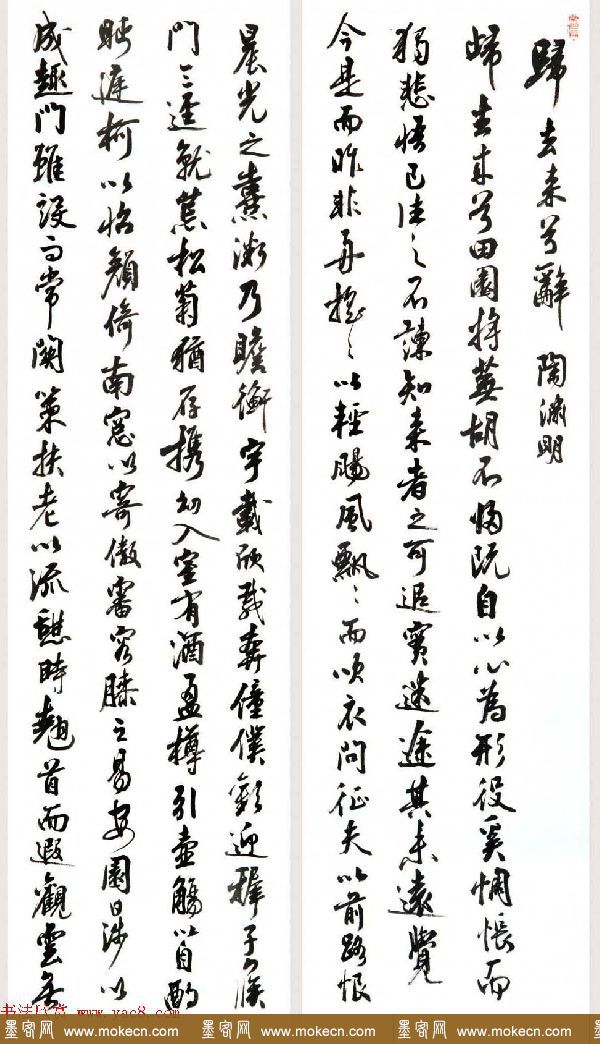 歸去来兮辭 陶淵明
歸去来兮田園将蕪胡不歸既自以心為形役奚惆悵而
獨悲悟已往之不諫知来者之可追實迷途其未遠覺
今是而昨非舟搖々以輕颺風飄々而吹衣問征夫以前路恨
晨光之熹微乃瞻衡宇載欣載奔僮僕歡迎稚子候
門三逕就荒松菊猶存携幼入室有酒盈樽引壺觴以自酌
眄庭柯以怡顏倚南窓以寄傲審容膝之易安園日涉以
成趣門雖設而常関策扶老以流憩時翹首而遐觀雲無
书法欣赏 www.yac8.com
墨客网 www.mokecn.com 墨客网 www.mokecn.com 墨客网 www.mokecn.com